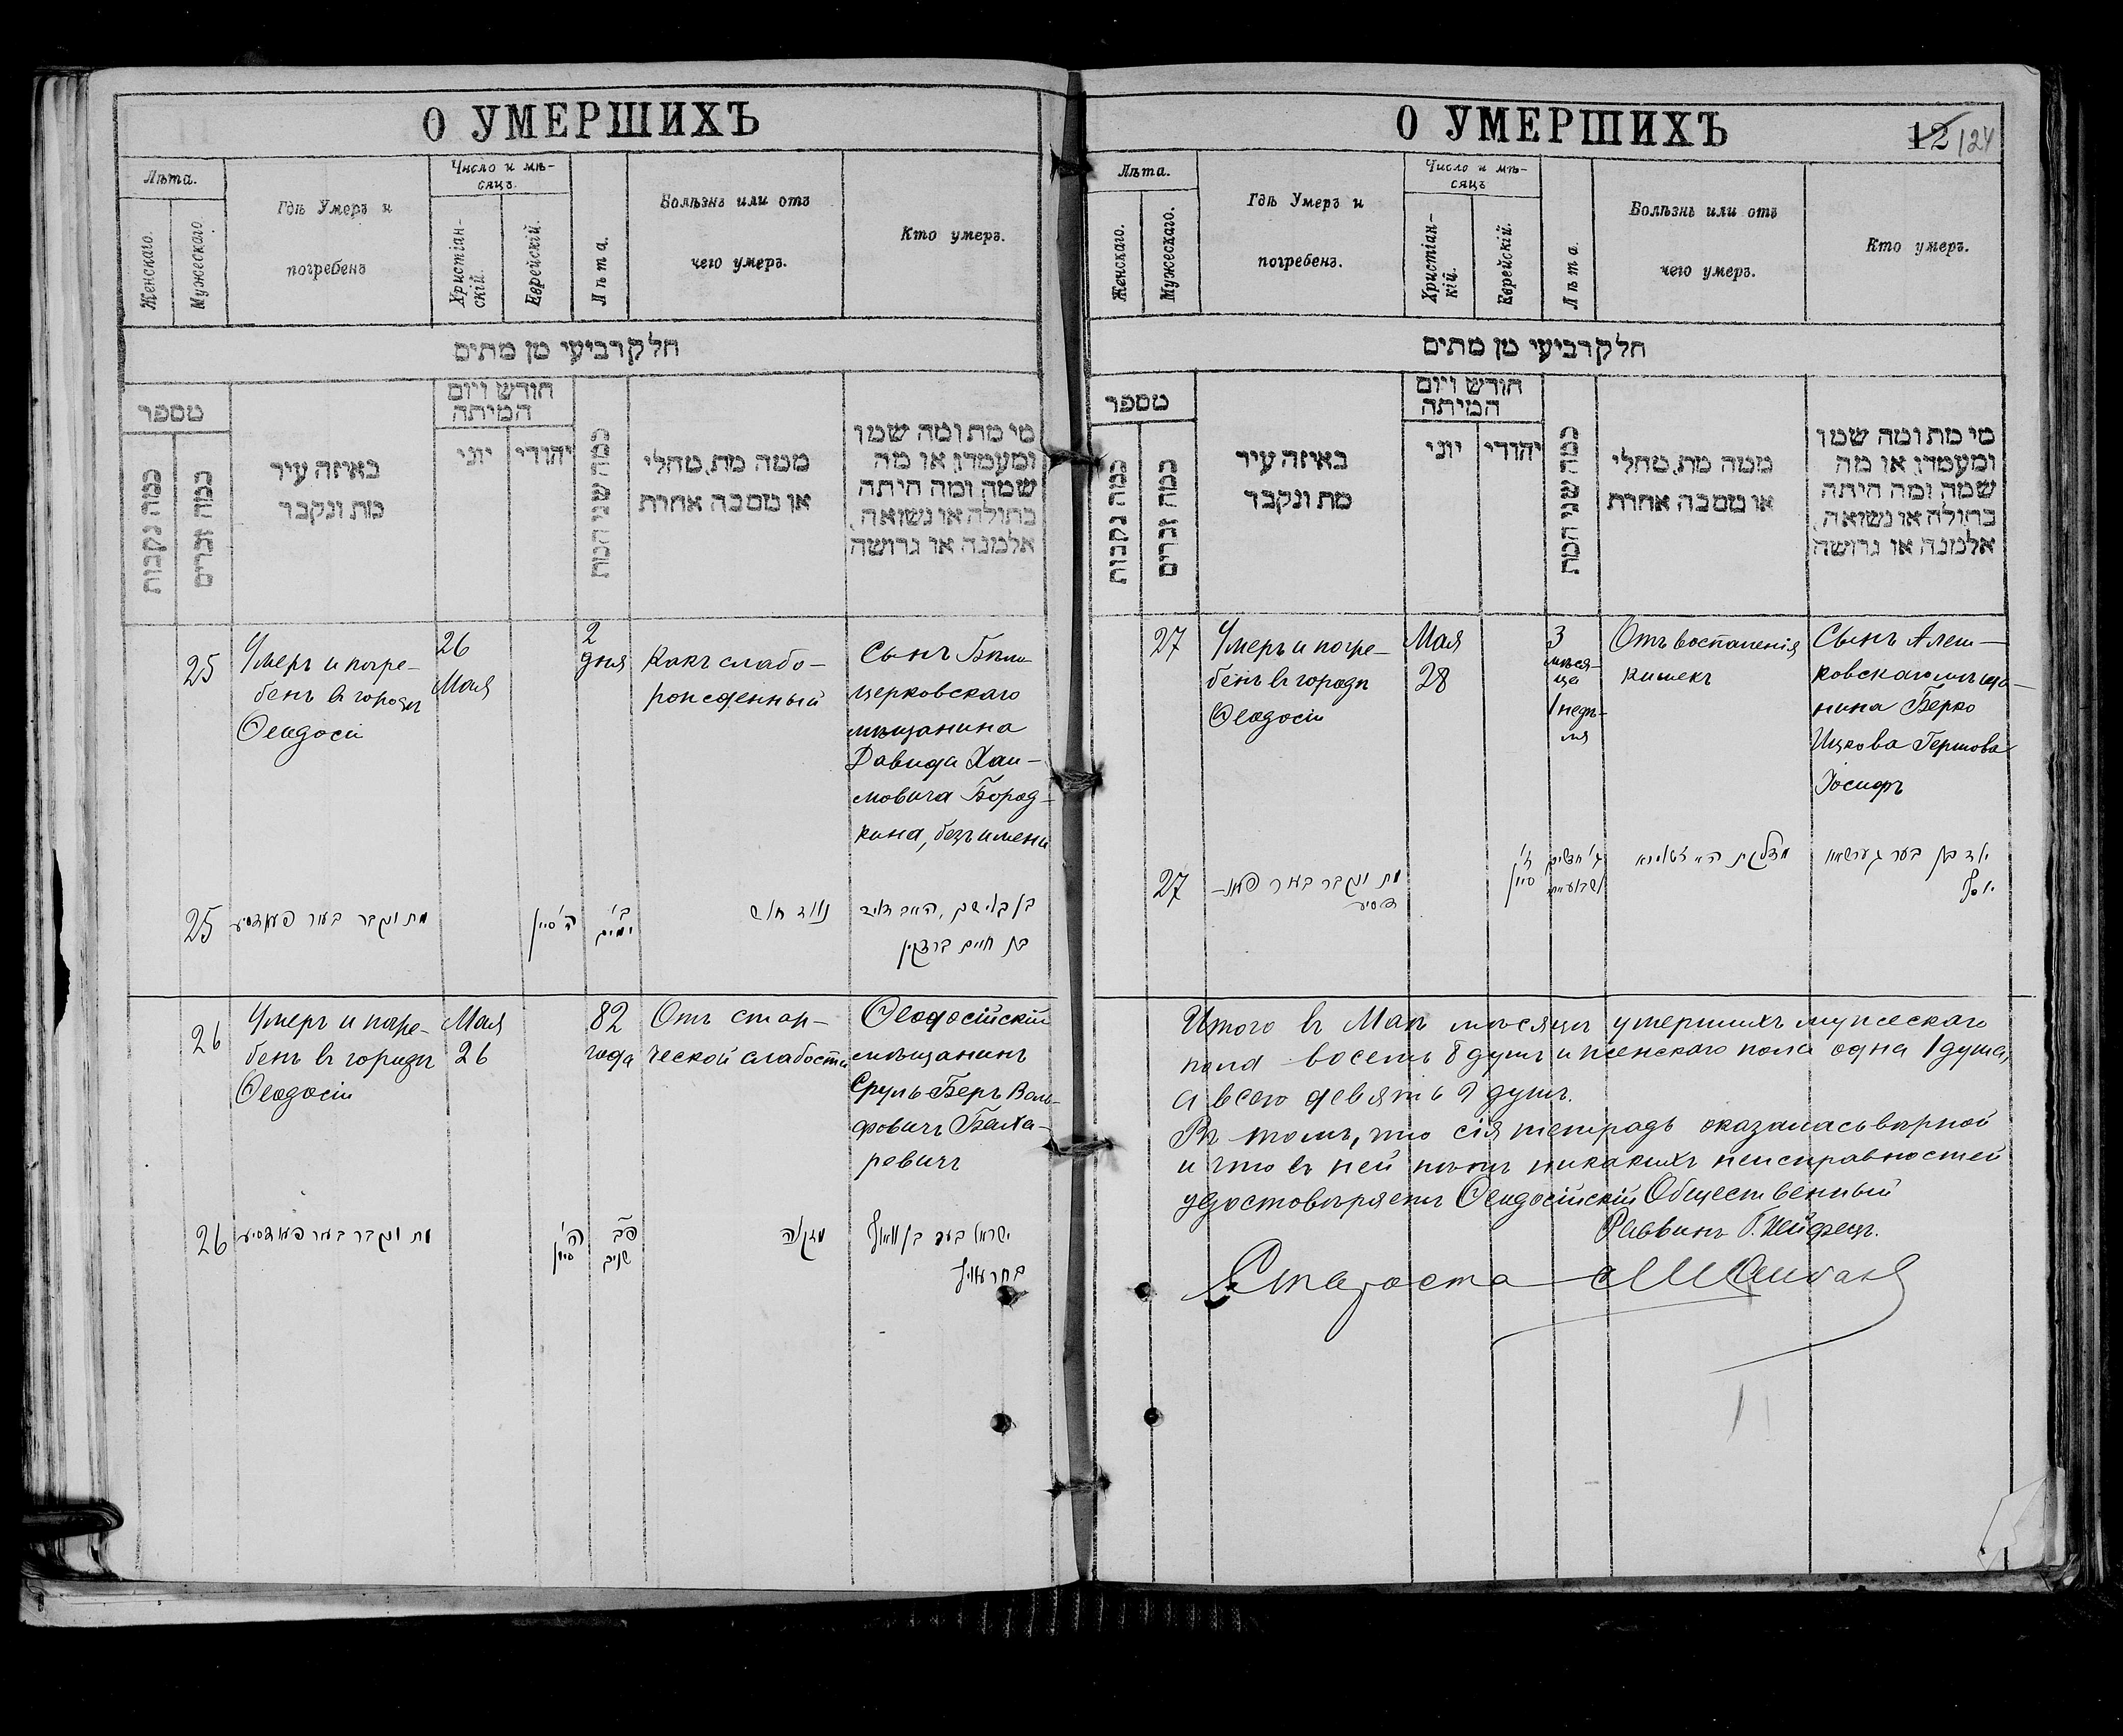 О УМЕРШИХЪ
Лѣта.
Женскаго.
Мужескаго.
Гдѣ Умеръ и
погребенъ
Число и мѣ-
сяцъ.
Христіан-
скій.
Еврейскій.
Лѣта.
Болѣзнь или отъ
чего умеръ.
Кто умеръ.
חלק רביעי מן מתים
מספר
כמה נקבות
כמה זכרים
באיזה עיר
מת ונקבר
חודש ויום
המיתה
יוני
יהודי
כמה שני המת
ממה מת, מחלי
או מסבה אחרת
מי מת ומה שמו
ומעמדו, או מה
שמה ומה היתה
בתולה או נשואה,
אלמנה או גרושה
25
Умеръ и погре-
бенъ въ городѣ
Ѳеодосіи
26
Мая
2
дня
Какъ слабо-
рожденный
Сынъ Бѣло-
церковскаго
мѣщанина
Давида Хаи-
мовича Бород-
кина, безъ имени
25
מת ונקבר בעיר פעאדסיע
ה' סיון
ב'
ימים
נולד חלש
בן בלי שם, האב דוד
בן חיים ברדקין
26
Умеръ и погре-
бенъ въ городѣ
Ѳеодосіи
Мая
26
82
года
Отъ стар-
ческой слабости
Ѳеодосійскій
мѣщанинъ
Сруль-Беръ Воль-
фовичъ Баха-
ревичъ
26
מת ונקבר בעיר פעאדסיע
ה'
סיון
פ״ב
שנים
מזקנה
ישראל בער בן וואלף
О УМЕРШИХЪ
12 124
Лѣта.
Женскаго.
Мужескаго.
Гдѣ Умеръ и
погребенъ.
Число и мѣ-
сяцъ
Христіан-
кій.
Еврейскій.
Лѣта.
Болѣзнь или отъ
чего умеръ.
Кто умеръ.
חלק רביעי מן מתים
מספר
כמה נקבות
כמה זכרים
באיזה עיר
מת ונקבר
חודש ויום
המיתה
יוני
יהודי
כמה שני המת
ממה מת, מחלי
או מסבה אחרת
מי מת ומה שמו
ומעמדו, או מה
שמה ומה היתה
בתולה או נשואה,
אלמנה או גרושה
27
Умеръ и погре-
бенъ въ городѣ
Ѳеодосіи
Мая
28
3
мѣся-
ца
1 недѣ-
ля
Отъ воспаленія
кишекъ
Сынъ Алеш-
ковскаго мѣща-
нина Берко
Ицкова Гершова
Іосифъ
27
מת ונקבר בעיר פעא-
דסיע
ז'
סיון
ג' חדשים
ושבוע
ילד בן בער גערשאוו
יוסף
Итого въ Маѣ мѣсяцѣ умершихъ мужескаго
пола восемь 8 душъ и женскаго пола одна 1 душа,
а всего девять 9 душъ.
Въ томъ, что сія тетрадь оказалась вѣрной
и что въ ней нѣтъ никакихъ неисправностей
удостовѣряетъ Ѳеодосійскій Общественный
Раввинъ
Староста